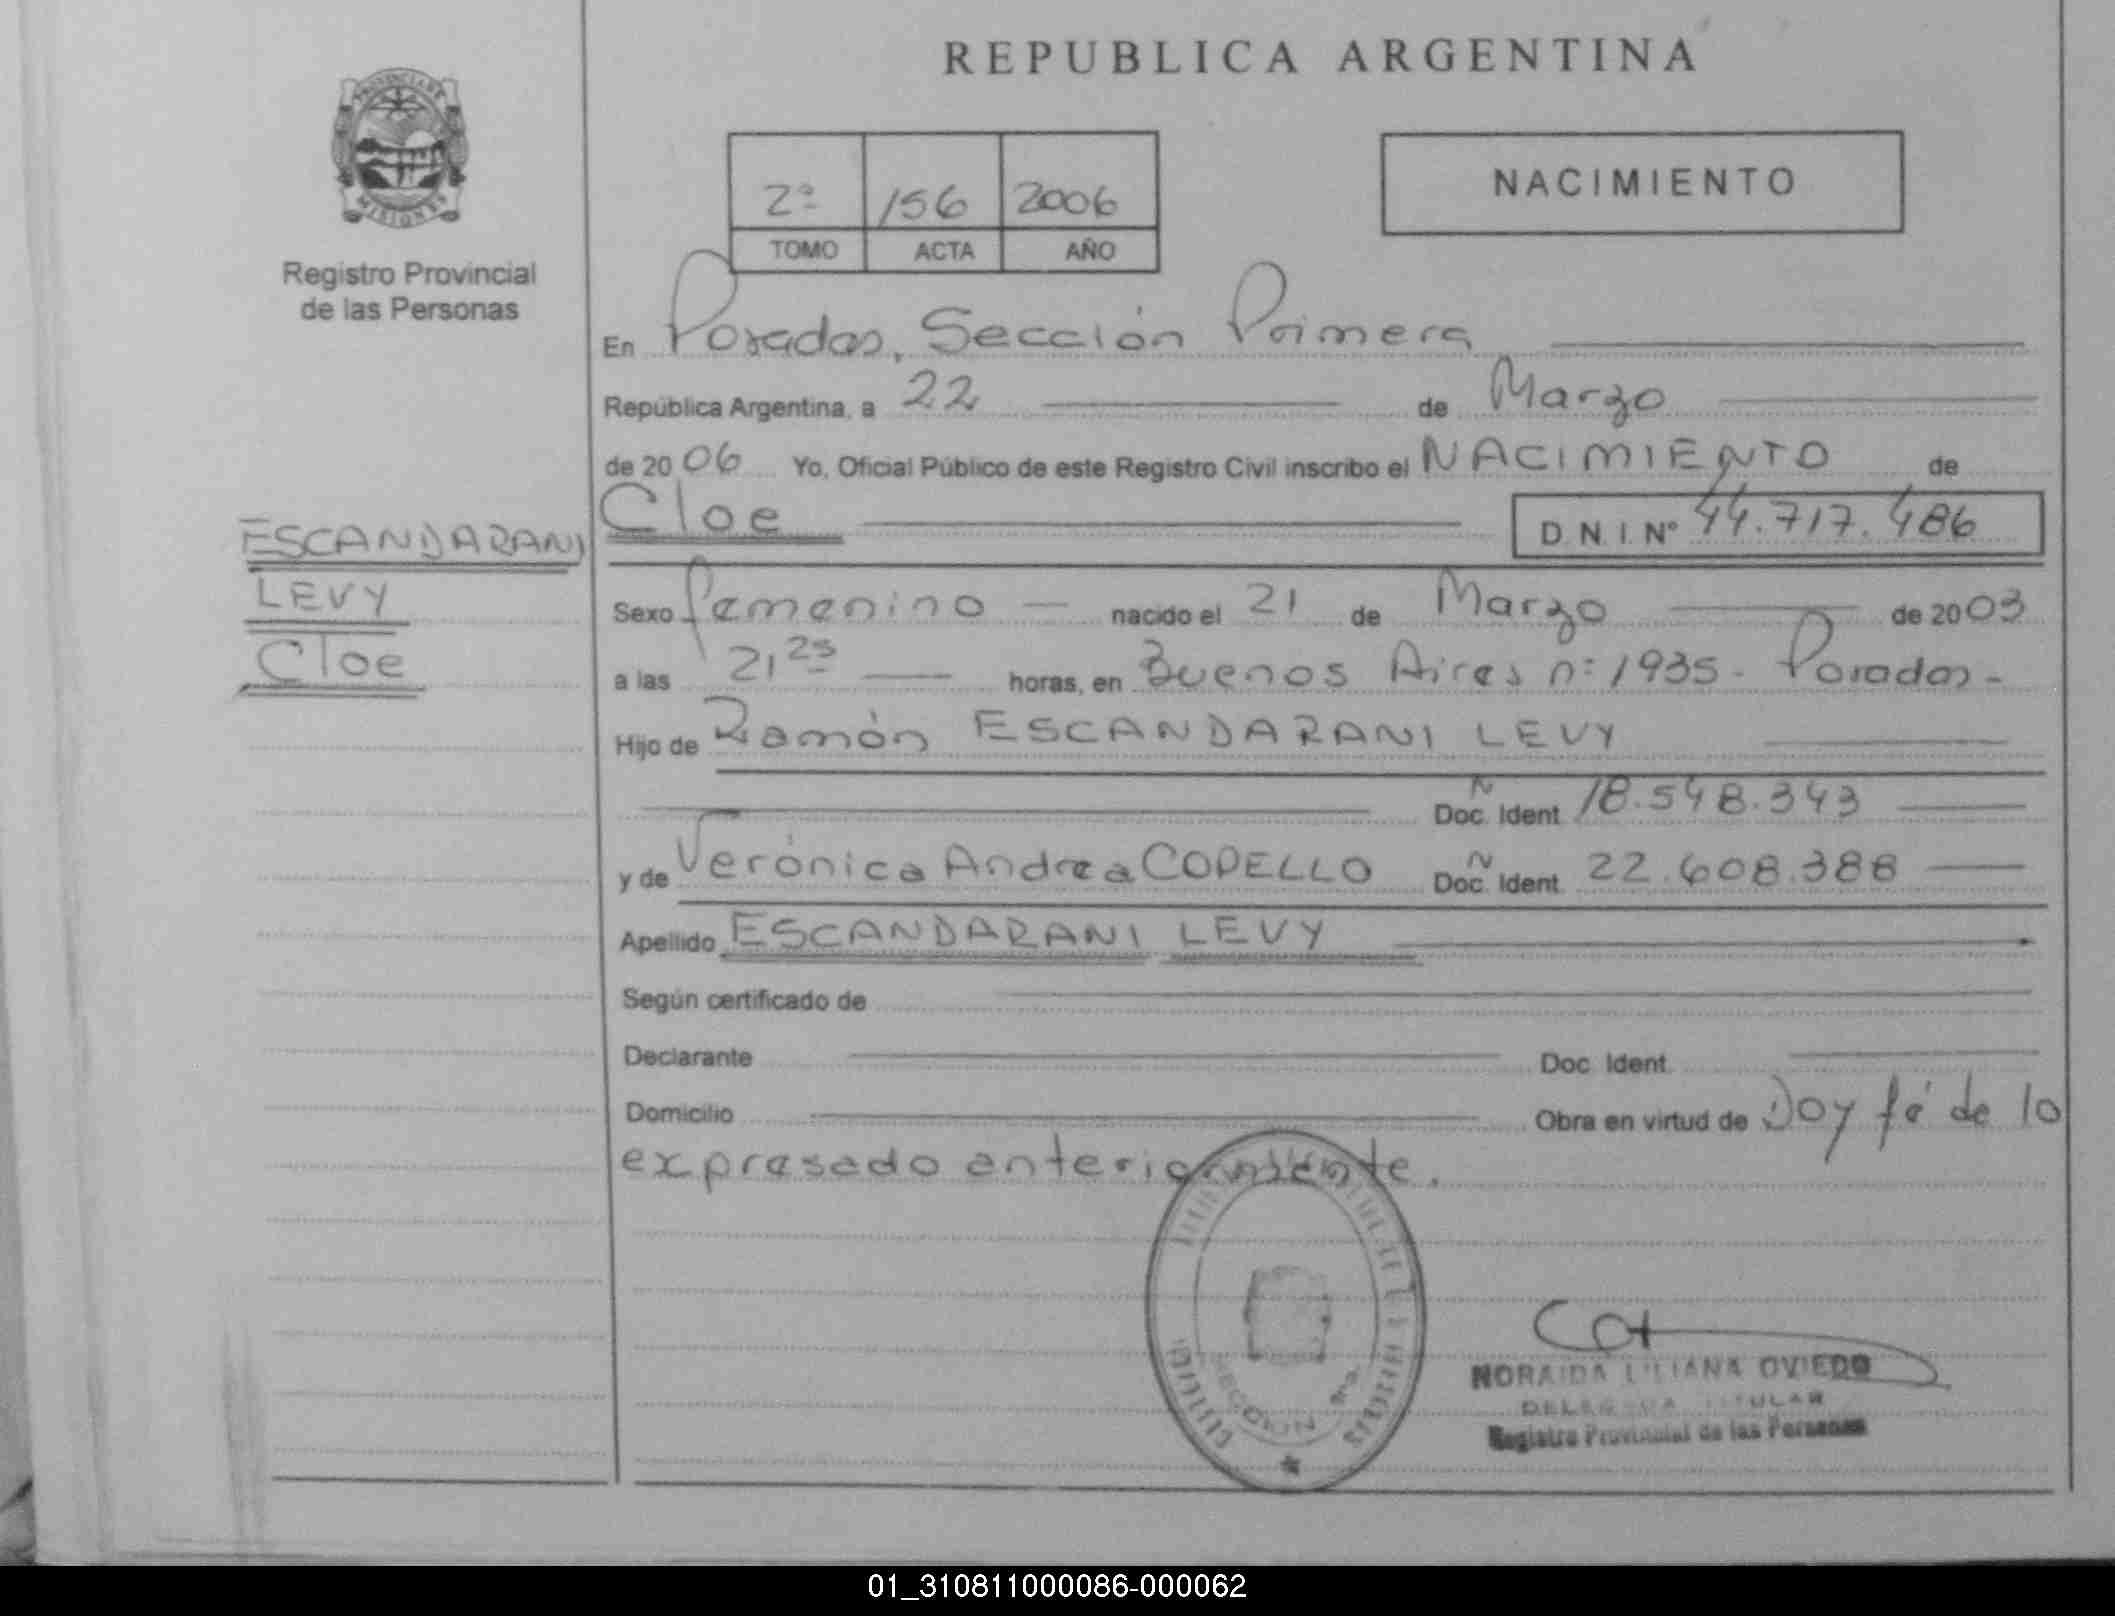 REPUBLICA ARGENTINA
PROVINCIA DE
MISIONES
Registro Provincial
de las Personas
2ª 156 2006
TOMO ACTA AÑO
NACIMIENTO
En Posadas, Sección Primera
República Argentina, a 22 de Marzo
de 2006 Yo, Oficial Público de este Registro Civil inscribo el NACIMIENTO de
Cloe D.N.I. Nº 44.717.486
ESCANDARANI
LEVY
Cloe
Sexo femenino nacido el 21 de Marzo de 2003
a las 21 25 horas, en Buenos Aires nº 1935 - Posadas -
Hijo de Ramón ESCANDARANI LEVY
Doc. Ident. N 18.548.343
y de Verónica Andrea COPELLO Doc. Ident. N 22.608.388
Apellido ESCANDARANI LEVY
Según certificado de
Declarante Doc. Ident.
Domicilio Obra en virtud de Doy fé de lo
expresado anteriormente.
SECCION 1ra.
NORAIDA LILIANA OVIEDO
DELEGADA TITULAR
Registro Provincial de las Personas
01_310811000086-000062